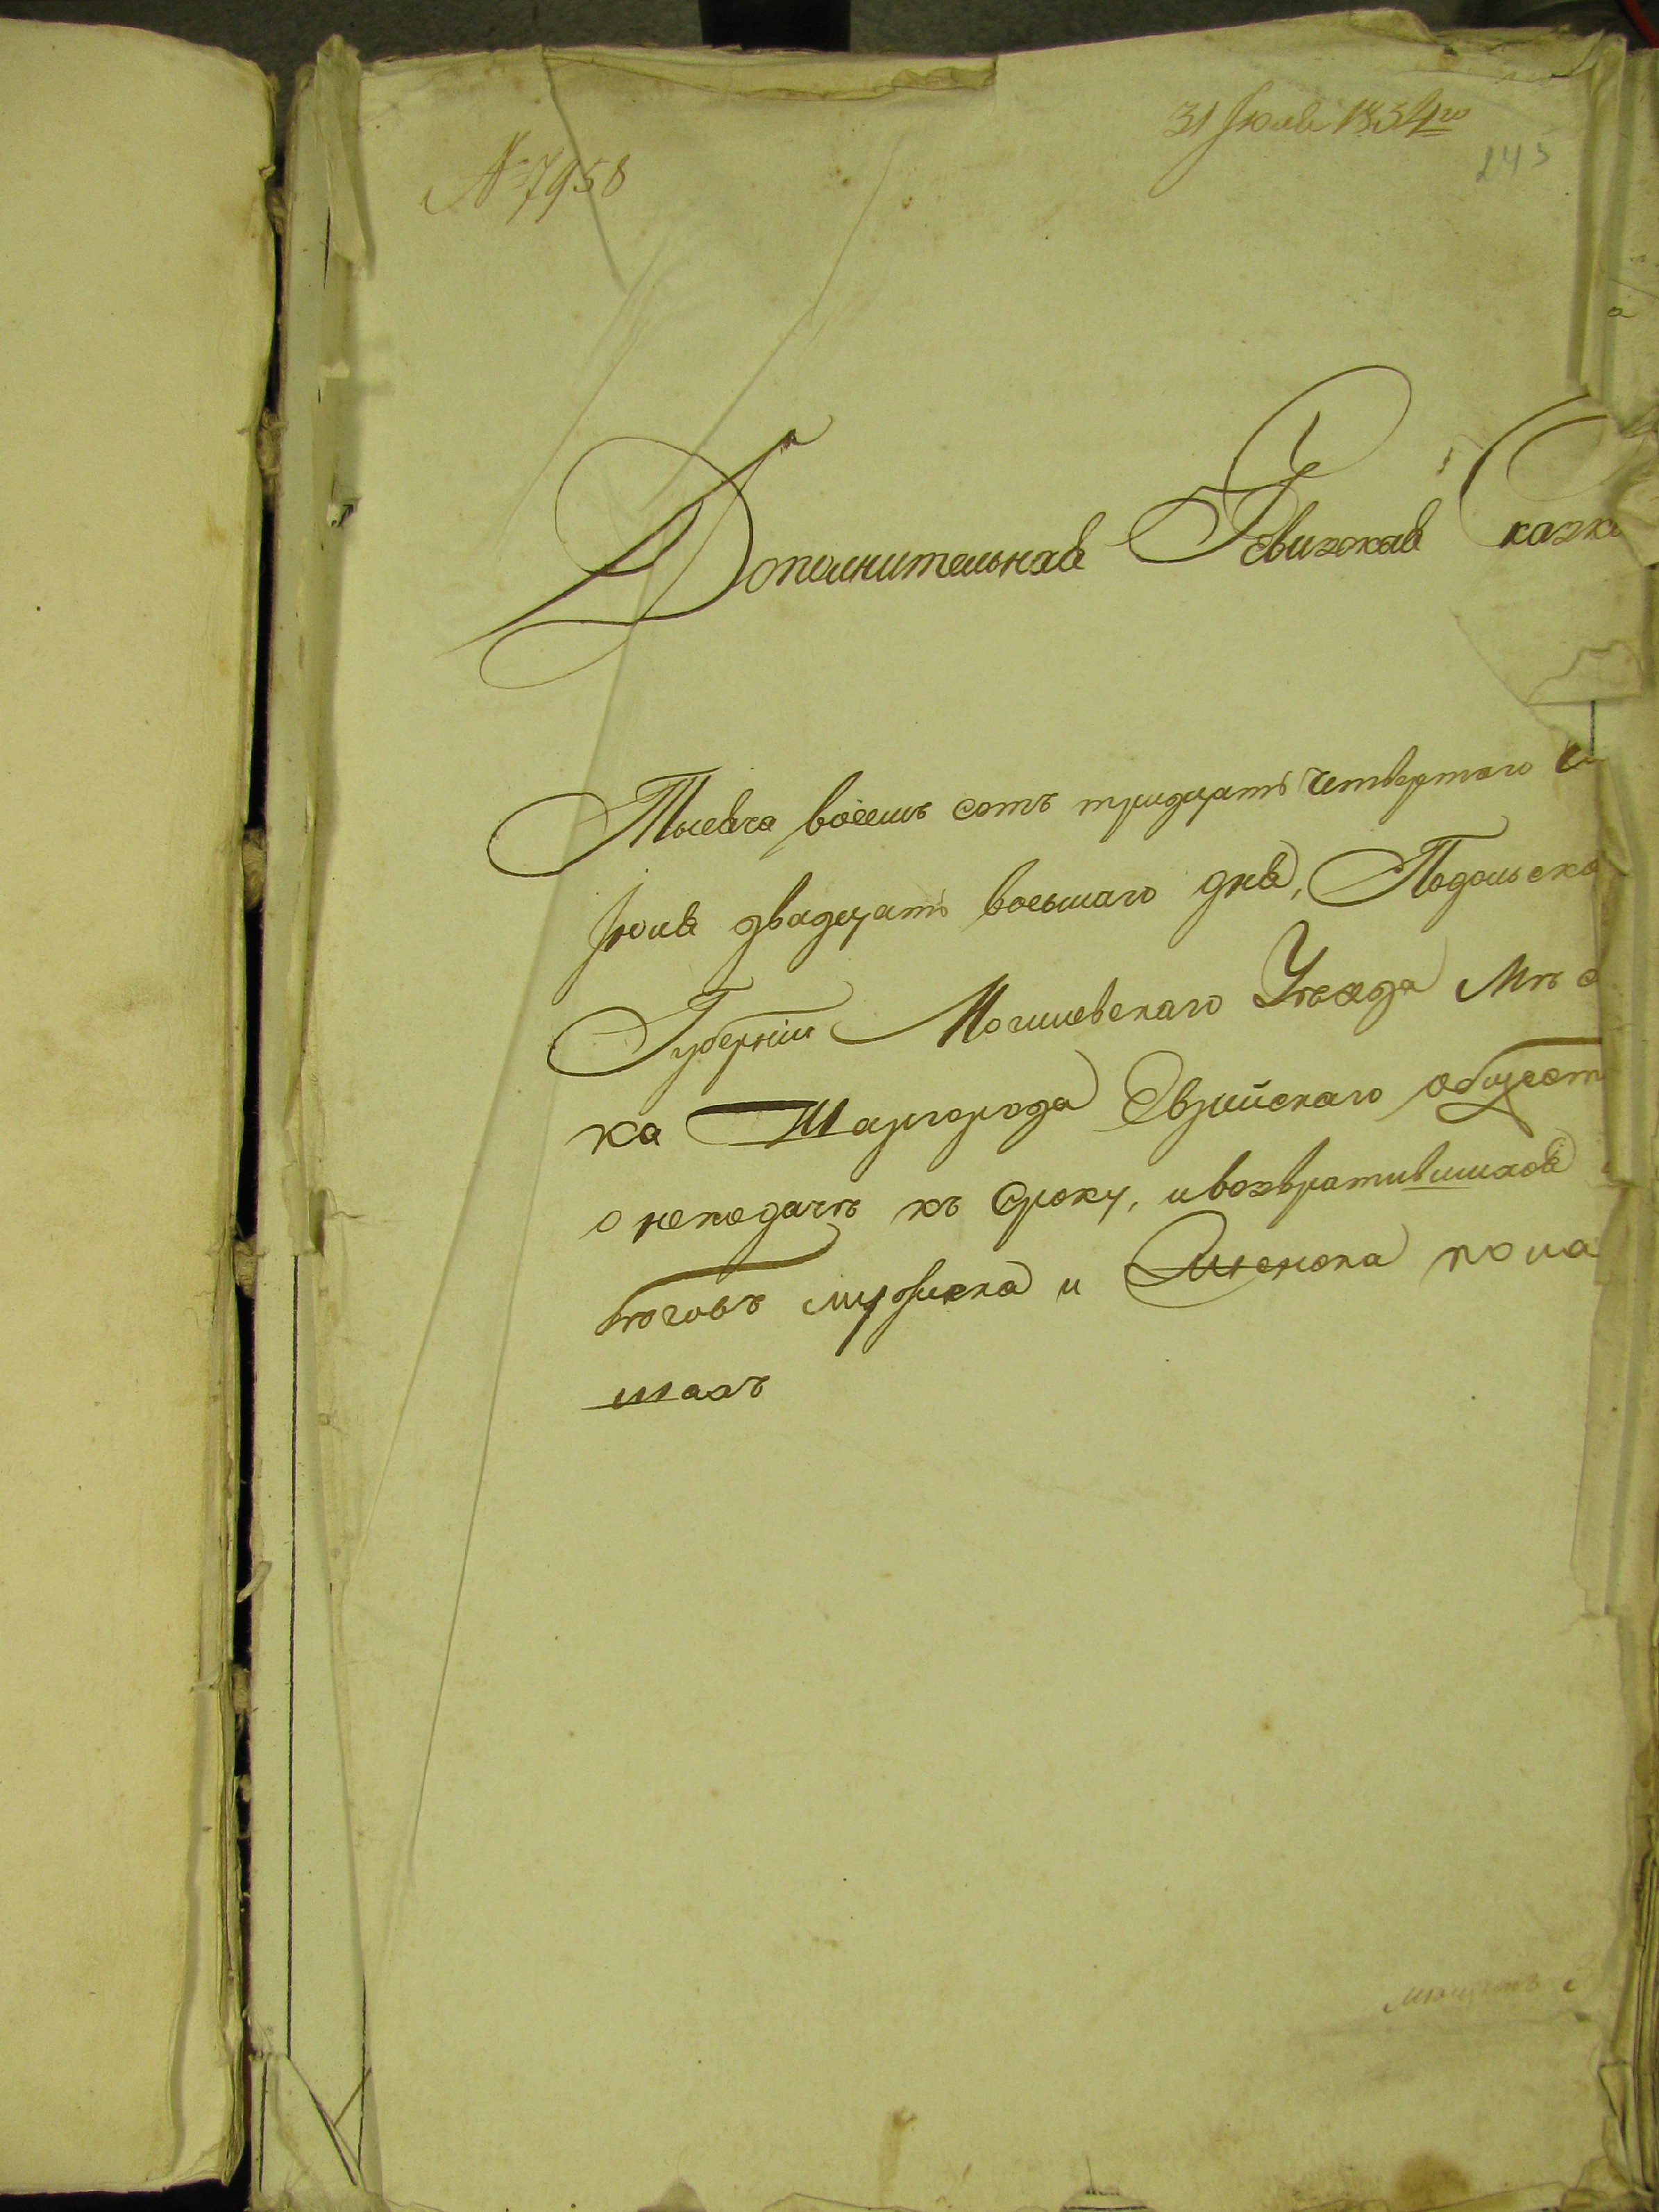 31 Июля 1834го
№ 7958
243
Дополнительная Ревизская Сказка
Тысяча восемь сотъ тридцать четвертаго
Июля двадцать восьмаго дня, Подольско
Губерніи Могилевскаго Уѣзда Мѣс
ка Шаргорода Еврейскаго общест
о неподачѣ къ сроку, и возвратившихся
бѣговъ мужеска и Женска пола